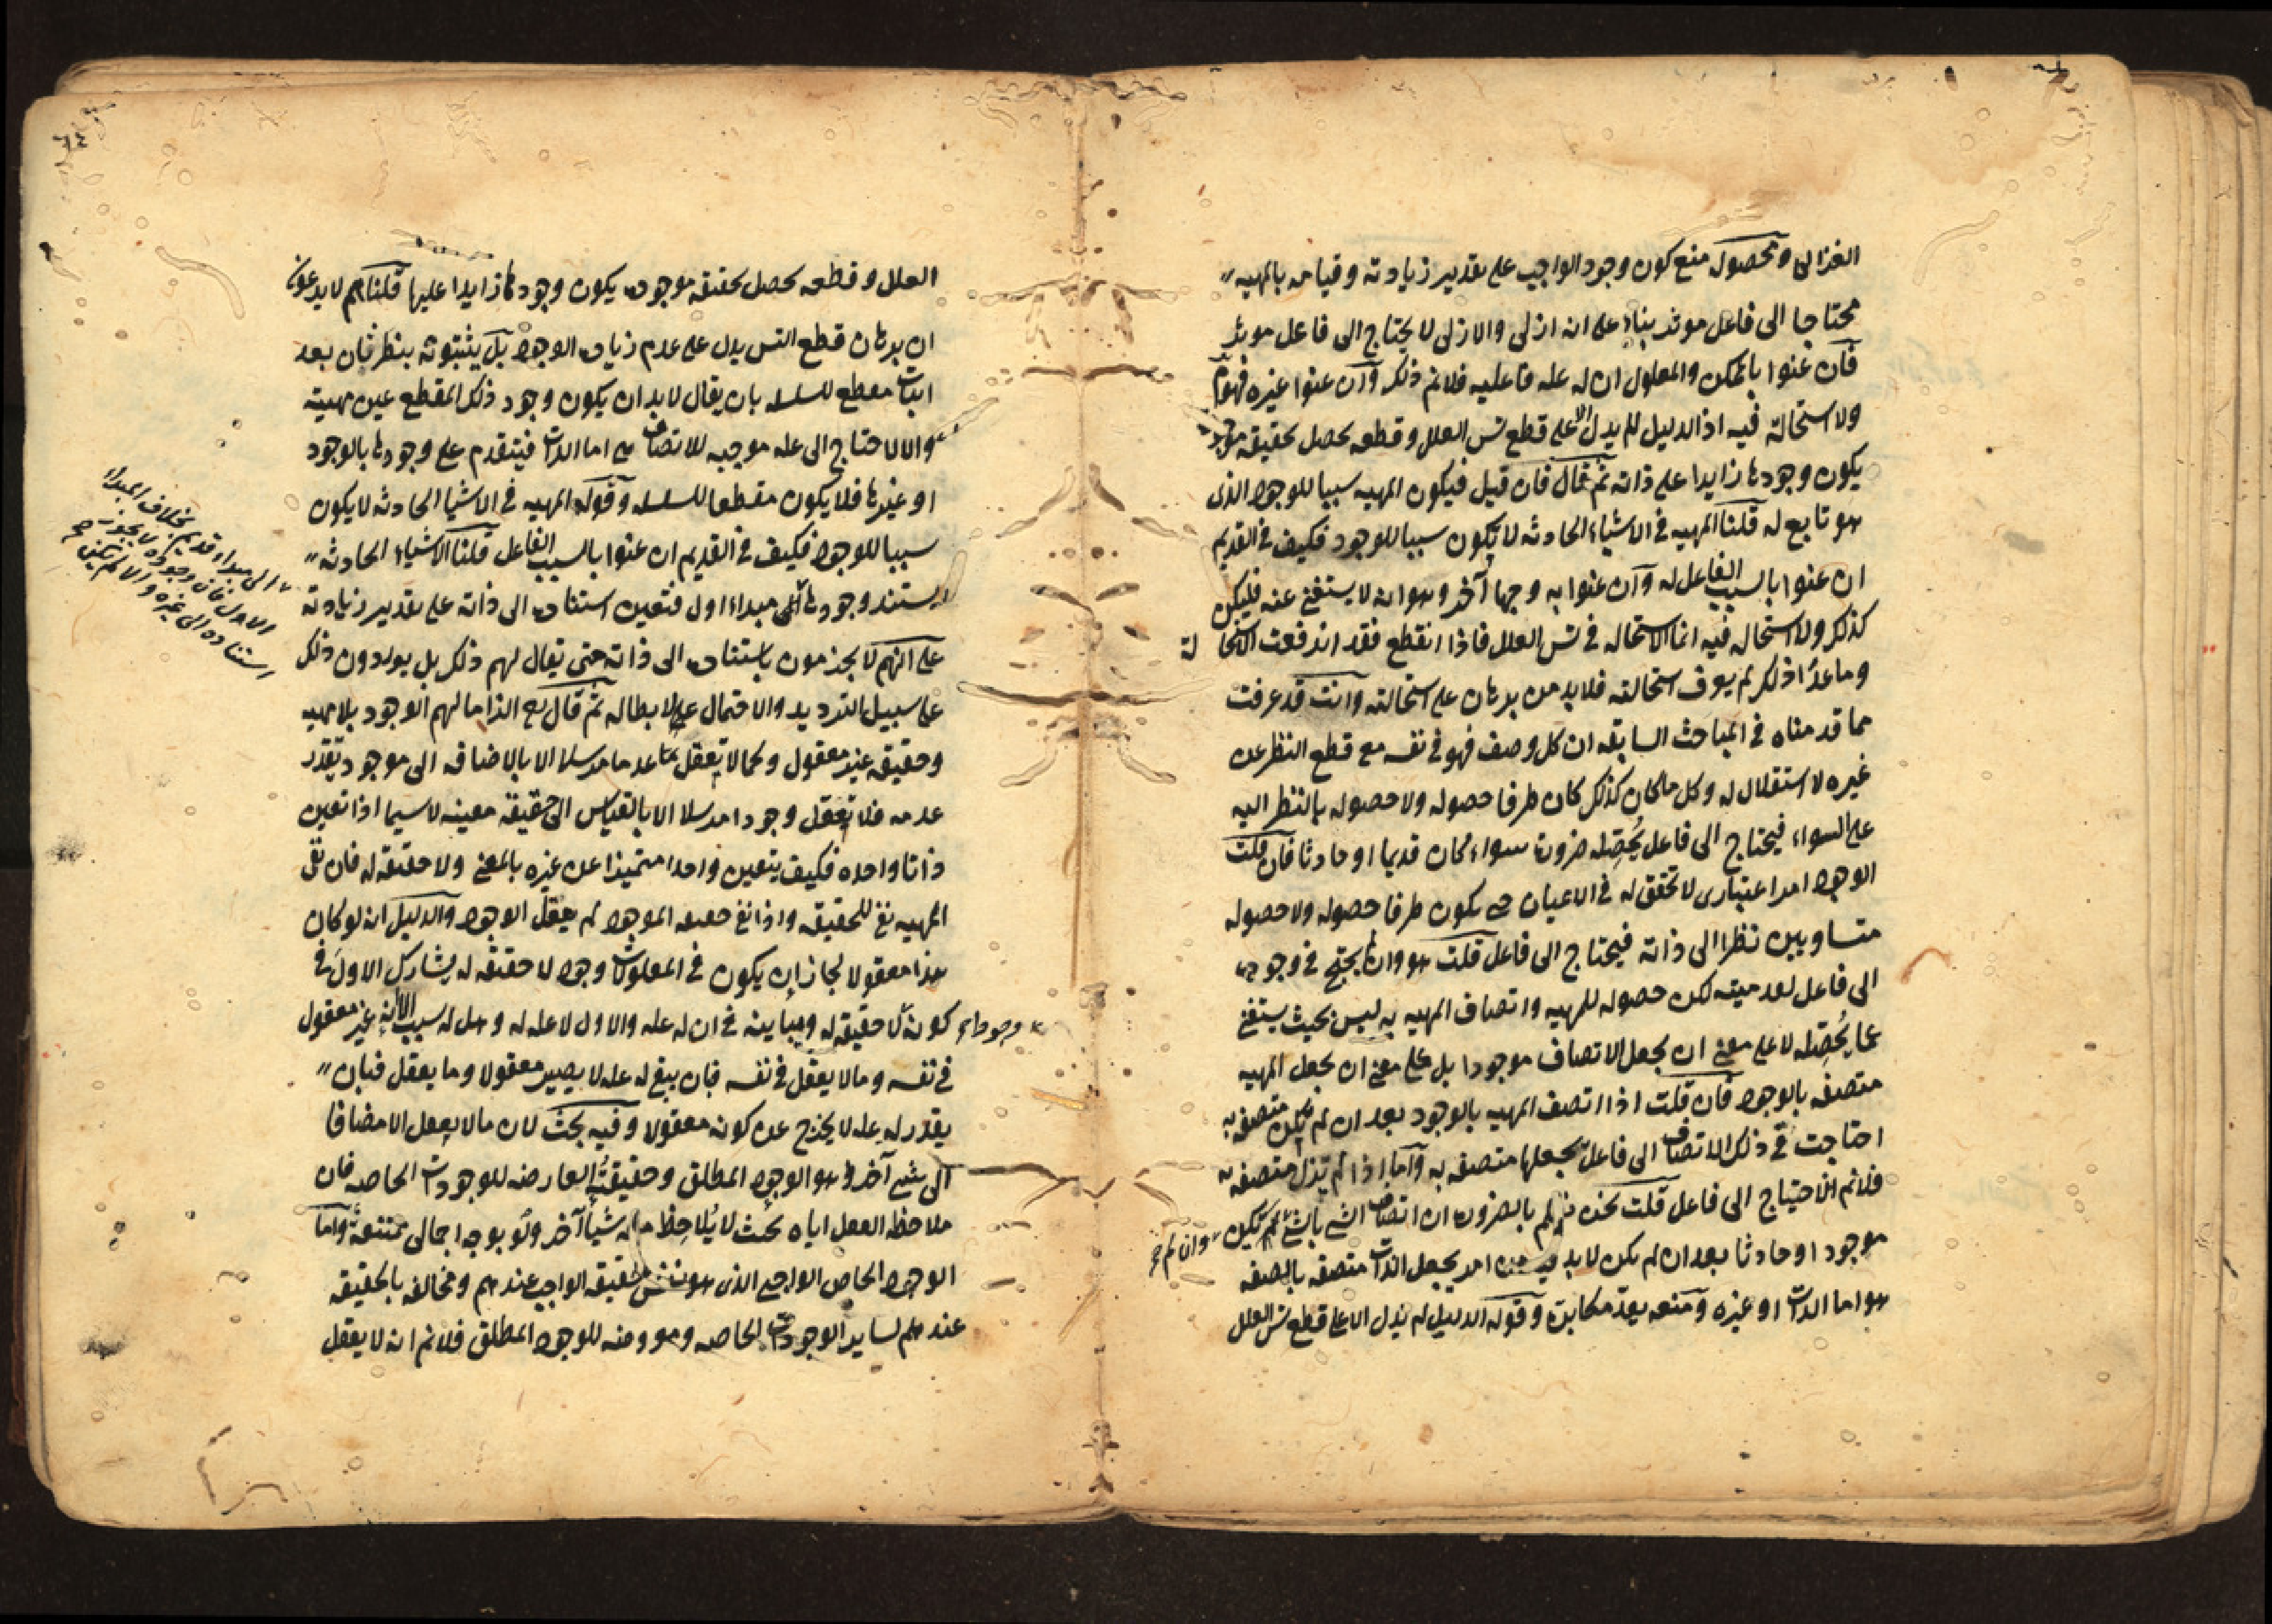 الغزالى ومحصول منع كون وجود الواجب على تقدير زيادته وقيامه بالمهيه
محتاجا الى فاعل موثر بناء على انه ازلى والازلى لا يحتاج الى فاعل موثر
فان عنوا بالممكن والمعلول ان له علة فاعليه فلانم ذلك وان عنوا غيره فهو م
ولا استحالة فيه اذ الدليل لم يدل الا على قطع تس العلل وقطعه يحصل بحقيقه موجوده
يكون وجودها زايدا على ذاته ثم قال فان قيل فيكون المهيه سببا للوجود الذى
هو تابع له قلنا المهيه فى الاشياء الحادثه لا يكون سببا للوجود فكيف فى القديم
ان عنوا بالسبب الفاعل له وان عنوا به وجها آخر وهو انه لا يستغنى عنه فليكن
كذلك ولا استحاله فيه انما الاستحاله فى تس العلل فاذا انقطع فقد اندفعت الاستحالة
وما عدا ذلك لم يعرف استحالته فلا بد من برهان على استحالته وانت قد عرفت
مما قدمناه فى المباحث السابقه ان كل وصف فهو فى نفسه مع قطع النظر عن
غيره لا استقلال له وكل ما كان كذلك كان طرفا حصوله ولا حصوله بالنظر اليه
على السواء فيحتاج الى فاعل يُحصّله ضرورة سواء كان قديما او حادثا فان قلت
الوجود امر اعتبارى لا تحقق له فى الاعيان حتى يكون طرفا حصوله ولا حصوله
متساويين نظرا الى ذاته فيحتاج الى فاعل قلت هو وان لم يحتج فى وجوده
الى فاعل لعدميته لكن حصوله للمهيه واتصاف المهيه به ليس بحيث يستغنى
عما يُحصّله لا على معنى ان يجعل الاتصاف موجودا بل على معنى ان يجعل المهيه
متصفه بالوجود فان قلت اذا اتصف المهيه بالوجود بعد ان لم يكن متصفه به
احتاجت فى ذلك الاتصاف الى فاعل يجعلها متصفه به واما اذا لم تزل متصفه به
فلانم الاحتياج الى فاعل قلت نحن نعلم بالضرورة ان اتصاف الشى بالشى وان لم يكن
موجودا او حادثا بعد ان لم يكن لا بد فيه من امر يجعل الذات متصفه بالصفه
هو اما الذات او غيره ومنعه يعد مكابرة وقوله الدليل لم يدل الا على قطع تس العلل
العلل وقطعه يحصل بحقيقه موجوده يكون وجودها زايدا عليها قلنا هم لا يدعون
ان برهان قطع التس يدل على عدم زيادة الوجود بل يثبتونه بنظر ثان بعد
اثبات مقطع للسلسله بان يقال لا بد ان يكون وجود ذلك المقطع عين مهيته
والا لاحتاج الى علة موجبه للاتصاف هى اما الذات فيتقدم على وجودها بالوجود
او غيرها فلا يكون مقطعا للسلسله وقوله المهيه فى الاشيا الحادثه لا يكون
سببا للوجود فكيف فى القديم ان عنوا بالسبب الفاعل قلنا الاشياء الحادثه
يستند وجودها الى مبداء اول فتعين استناده الى ذاته على تقدير زيادته
الى مبداء قديم بخلاف المبداء
الاول فان وجوده لا يجوز
استناده الى غيره والا لم يكن
على انهم لا يجزمون باستناده الى ذاته حتى يقال لهم ذلك بل يوردون ذلك
على سبيل الترديد والاحتمال لابطاله ثم قال الوجود بلا مهيه
وحقيقه غير معقول وكما لا يعقل عدما مرسلا الا بالاضافه الى موجود يقدر
عدمه فلا تعقل وجودا مرسلا الا بالقياس الى حقيقة معينه لا سيما اذا تعين
ذاتا واحده فكيف يتعين واحدا متميزا عن غيره بالمعنى ولا حقيقه له فان نفى
المهيه نفى للحقيقه واذا نفى حقيقه الموجود لم يعقل الوجود والدليل انه لو كان
هذا معقولا لجاز ان يكون فى المعلولات وجود لا حقيقه له يشارك الاول فى
كونه لا حقيقه له ويباينه فى ان له علة والاول لا علة له وهل له سبب الا انه غير معقول
فى نفسه وما لا يعقل فى نفسه فبان ينفى له علة لا يصير معقولا وما يعقل فبان
يقدر له علة لا يخرج عن كونه معقولا وفيه بحث لان ما لا يعقل الا مضافا
الى شى آخر هو الوجود المطلق وحقيقته العارضه للوجودات الخاصه فان
ملاحظه العقل اياه بحيث لا يُلاحظ معه شيا آخر ولو بوجه اجمالى ممتنعة واما
الوجود الخاص الواجبى الذى هو نفس حقيقه الواجب عندهم ومخالف بالحقيقه
عندهم لساير الوجودات الخاصه ومعروضه للوجود المطلق فلانم انه لا يعقل